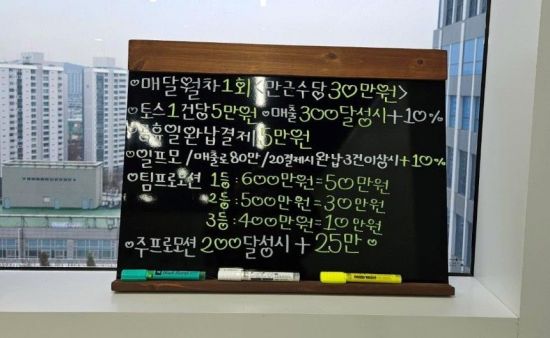 매달월차1회<만근수당30만원>
토스1건당5만원 매출300달성시+10%
휴일완납결제 5만원
일프모/매출로80만/20결제시완납3건이상시+10%
팀프로모션 1등:600만원=50만원
2등:500만원=30만원
3등:400만원=10만원
주프로모션 200달성시+25만